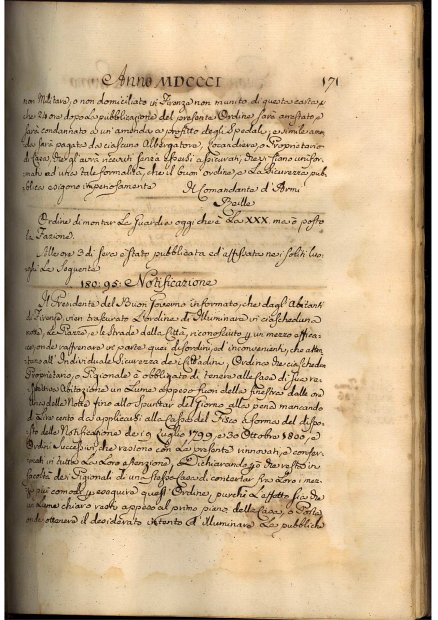 Anno MDCCCI 171
non Militare, o non domiciliato in Firenze non munito di questa carta
che 24 ore dopo la pubblicazione del presente Ordine, sarà arrestato e
sarà condannato a un'amenda a profitto degli Spedali; e simile amen
da sarà pagata da ciascuno Albergatore, Locandiere, o Proprietario
di Casa, che gl'avrà ricevuti senza essersi assicurati, che si siano unifor
mati ad una tale formalità, che il buon'ordine, e la sicurezza pub
blica esigono imperiosamente Il Comandante d'Armi
Ordine di montar le Guardie oggi che è la XXX. ma è posto
la Fazione.
Alle ore 3 di sera è stato pubblicata ed affissata nei soliti luo
ghi la seguente
180: 95: Notificazione
Il Presidente del Buon Governo informato, che dagl'Abitanti
di Firenze, vien trascurato l'ordine di Illuminare in ciascheduna
notte, le Piazze, e le Strade della Città, riconosciuto p un mezzo effica
ce, onde raffrenare in parte quei disordini, ed inconvenienti, che atten
tano all'Individuale sicurezza dei Cittadini, Ordina che ciaschedun
Proprietario, o Pigionale è obbligato di tenere alla Casa di sua res
pettiva Abitazione un Lume appeso fuori della finestra dalle ore
della Notte fino allo spuntar del Giorno alla pena mancando
di Lire cento da applicarsi alla Cassa del Fisco a forma del dispo
sto delle Notificazione dei 19 Luglio 1799, e 30 Ottobre 1800, e
Ordini successivi, che restono con la presente innovati, e confer
mati in tutta la loro estenzione, Dichiarando p che resta in
facoltà dei Pigionali di una stessa Casa di concertar fra loro i mez
zi più comodi p eseguire quest'Ordine, purchè l'effetto sia che
un Lume chiaro resti appeso al primo piano della Casa, o Porta
onde ottenere il desiderato intento d'Illuminare le pubbliche